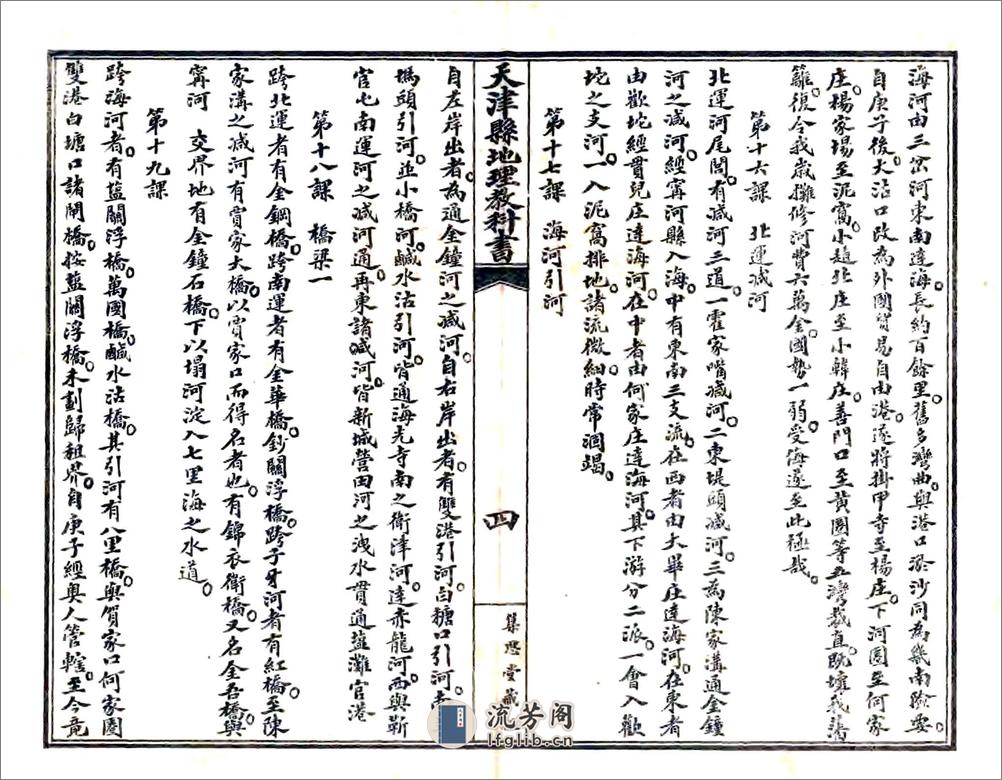 海河由三岔河東南達海。長約百餘里。舊多灣曲。與港口淤沙同為畿南險要。
自庚子後。大沽口改為外國貿易自由港。遂將掛甲寺至楊庄。下河圈至何家
庄。楊家場至泥窩。小趙北庄至小韓庄。善門口至黄圈等五灣裁直。既壞我藩
籬。復令我歲攤修河費六萬金。國勢一弱。受侮遂至此極哉。
第十六課　北運減河
北運河尾閭。有減河三道。一霍家嘴減河。二東堤頭減河。三為陳家溝通金鐘
河之減河。經甯河縣入海。中有東南三支流。在西者由大畢庄達海河。在東者
由歡坨經貫兒庄達海河。在中者由何家庄達海河。其下游分二派。一會入歡
坨之支河。一入泥窩排地。諸流微細。時常涸竭。
第十七課　海河引河
天津縣地理教科書
四
集思堂藏
自左岸出者。為通金鐘河之減河。自右岸出者。有雙港引河。白糖口引河。南
碼頭引河。並小橋河。鹹水沽引河。皆通海光寺南之衛津河。達赤龍河。西與靳
官屯南運河之減河通。再東諸減河。皆新城營田河之洩水。貫通藍灘官港
第十八課　橋梁一
跨北運者有金鋼橋。跨南運者有金華橋。鈔關浮橋。跨子牙河者有紅橋。至陳
家溝之減河有賈家大橋。以賈家口而得名者也。有錦衣衛橋。又名金吾橋。與
甯河　交界地有金鐘石橋。下以塌河淀入七里海之水道。
第十九課
跨海河者。有藍關浮橋。萬國橋。鹹水沽橋。其引河有八里橋。與賀家口何家圈
雙港白塘口諸閘橋。按藍關浮橋。未劃歸租界。自庚子經奧人管轄。至今竟
流芳阁
lfglib.cn